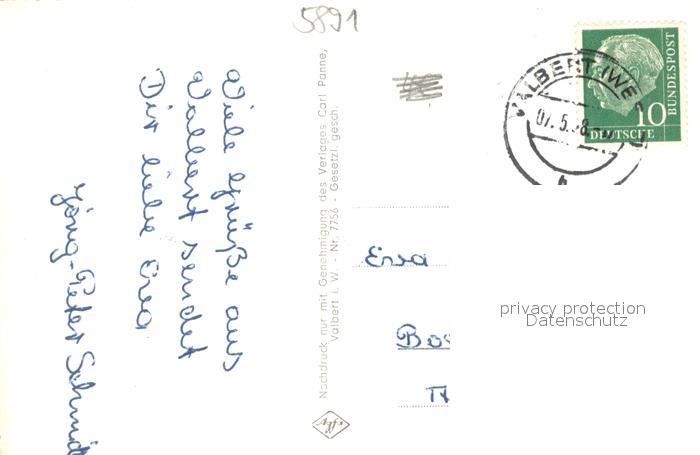 5891
Viele Grüße aus
Valbert sendet
Dir liebe Eva
Jörg-Peter Schmidt
Nachdruck nur mit Genehmigung des Verlages Carl Panne,
Valbert i. W. - Nr. 7756 - Gesetzl. gesch.
VALBERT (WE
07.5.58
b
10
DEUTSCHE
BUNDESPOST
Eva
Bo
privacy protection
Datenschutz